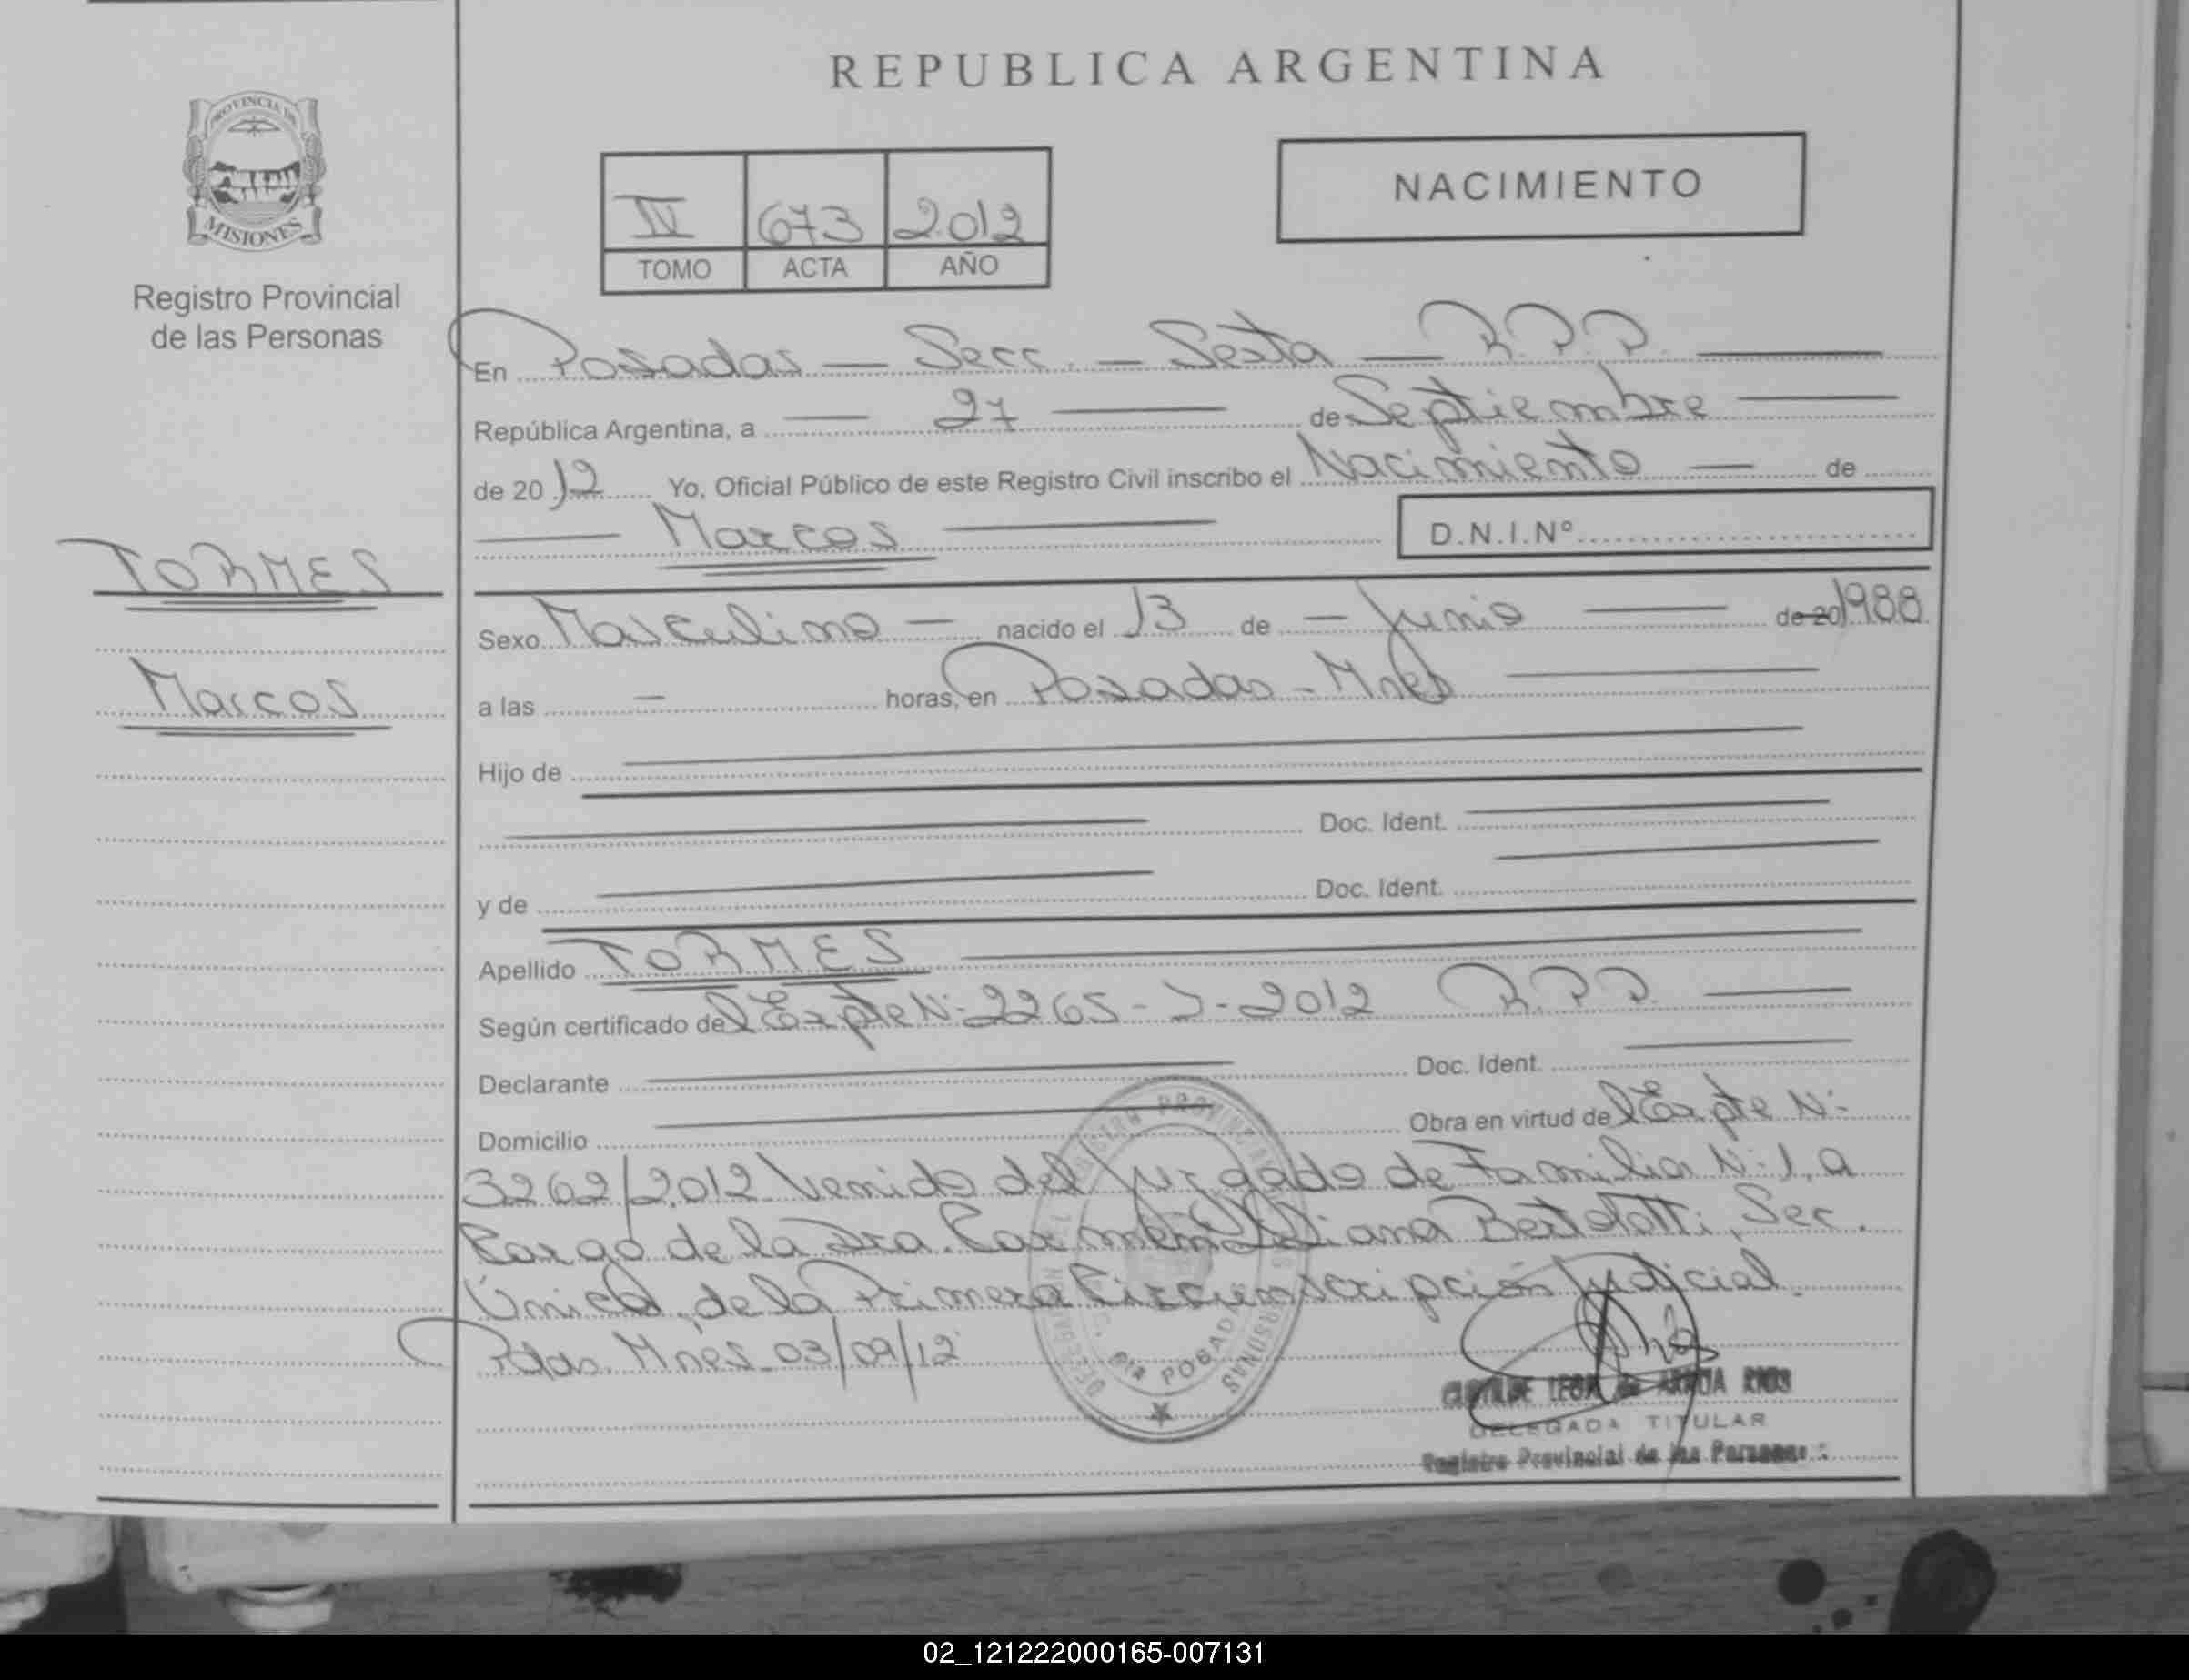 REPUBLICA ARGENTINA
PROVINCIA DE
MISIONES
Registro Provincial
de las Personas
IV 673 2012
TOMO ACTA AÑO
NACIMIENTO
En Posadas — Secc. — Sexta — R.P.P.
República Argentina, a 27 de Septiembre
de 2012 Yo, Oficial Público de este Registro Civil inscribo el Nacimiento — de
Marcos
D.N.I.Nº
TORMES
Marcos
Sexo Masculino — nacido el 13 de — Junio — de 20 1988
a las — horas, en Posadas - Mnes
Hijo de
Doc. Ident.
y de Doc. Ident.
Apellido TORMES
Según certificado del Expte N: 2265 - - 2012 R.P.P.
Declarante Doc. Ident.
Domicilio Obra en virtud del Expte N:
3262/2012 Venido del Juzgado de Familia N: 1, a
Cargo de la Dra. Carmen Bertolotti, Sec.
Única, de la Primera Circunscripción Judicial.
Pdas. Mnes. 03/09/12
POSADAS
DELEGADA TITULAR
Registro Provincial de las Personas
02_121222000165-007131